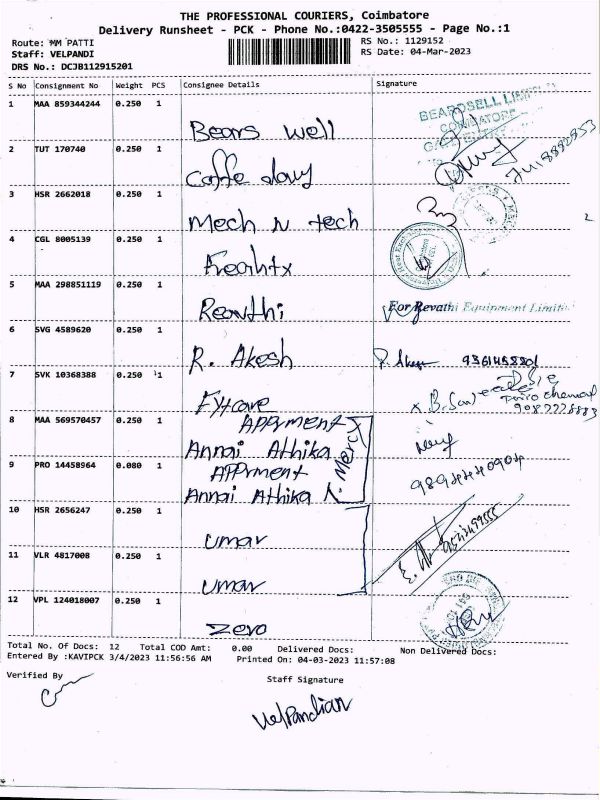 THE PROFESSIONAL COURIERS, Coimbatore
Delivery Runsheet - PCK - Phone No.:0422-3505555 - Page No.:1
Route: MM PATTI
RS No.: 1129152
Staff: VELPANDI
RS Date: 04-Mar-2023
DRS No.: DCJB112915201
S No Consignment No Weight PCS Consignee Details Signature
1 MAA 859344244 0.250 1
BEARDSELL LIMITED
COIMBATORE
Bears well
2 TUT 170740 0.250 1
Coffe day
3 HSR 2662018 0.250 1
Mech N tech
4 CGL 8005139 0.250 1
5 MAA 298851119 0.250 1
For Revathi Equipment Limited
Revathi
6 SVG 4589620 0.250 1
R. Akesh
7 SVK 10368388 0.250 1
Fytcare
8 MAA 569570457 0.250 1
APPrment
Annai Athika
Mercy
9 PRO 14458964 0.080 1
APPrment
Annai Athika
10 HSR 2656247 0.250 1
umar
11 VLR 4817008 0.250 1
umar
12 VPL 124018007 0.250 1
Zero
Total No. Of Docs: 12 Total COD Amt: 0.00 Delivered Docs: Non Delivered Docs:
Entered By :KAVIPCK 3/4/2023 11:56:56 AM Printed On: 04-03-2023 11:57:08
Verified By
Staff Signature
VelPandian